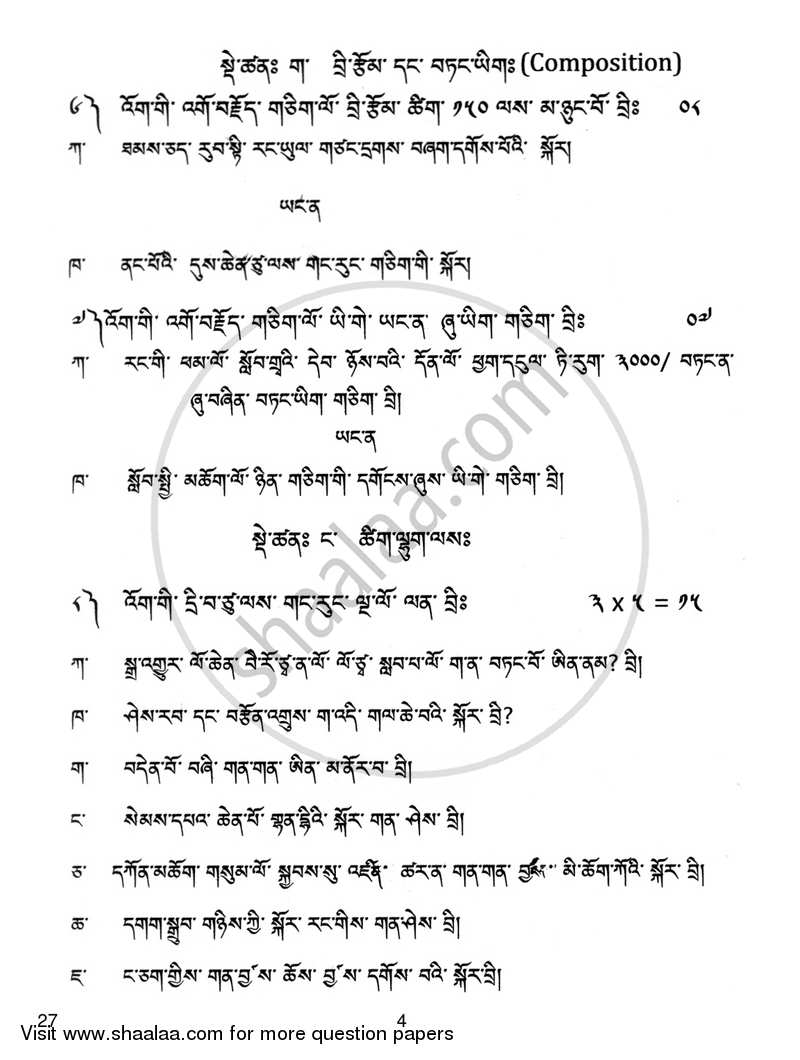 སྡེ་ཚནཿ ག་ བྲི་རྩོམ་ དང་ བཏང་ཡིགཿ (Composition)
༦༽ འོག་གི་ འགོ་བརྗོད་ གཅིག་ལོ་ བྲི་རྩོམ་ ཚིག་ ༡༥༠ ལས་ མ་ཉུང་བོ་ བྲིཿ ༠༨
ཀ་ ཐམས་ཅད་ རུབ་སྟི་ རང་ཡུལ་ གཙང་དྲགས་ བཞག་དགོས་པོའི་ སྐོར།
ཡང་ན
ཁ་ ནང་པོའི་ དུས་ཆེན་ཙུ་ལས་ གང་རུང་ གཅིག་གི་ སྐོར།
༧༽འོག་གི་ འགོ་བརྗོད་ གཅིག་ལོ་ ཡི་གེ་ ཡང་ན་ ཞུ་ཡིག་ གཅིག་ བྲིཿ ༠༧
ཀ་ རང་གི་ ཕམ་ལོ་ སློབ་གྲྭའི་ དེབ་ ཉོས་བའི་ དོན་ལོ་ ཕྱག་དངུལ་ ཏི་རུག་ ༣༠༠༠/ བཏང་ན་
ཞུ་བཞིན་ བཏང་ཡིག་ གཅིག་ བྲི།
ཡང་ན
ཁ་ སློབ་སྤྱི་ མཆོག་ལོ་ ཉིན་ གཅིག་གི་ དགོངས་ཞུས་ ཡི་གེ་ གཅིག་ བྲི།
སྡེ་ཚནཿ ང་ ཚིག་ལྷུག་ལསཿ
༨༽ འོག་གི་ དྲི་བ་ཙུ་ལས་ གང་རུང་ ལྔ་ལོ་ ལན་ བྲིཿ ༣ x ༥ = ༡༥
ཀ་ སྒྲ་འགྱུར་ ལོ་ཆེན་ བཻ་རོ་ཙྭ་ན་ལོ་ ལོ་ཙྭ་ སླབ་པ་ལོ་ ག་ན་ བཏང་བོ་ ཨིན་ནམ? བྲི།
ཁ་ ཤེས་རབ་ དང་ བརྩོན་འགྲུས་ ག་འདི་ གལ་ཆེ་བའི་ སྐོར་ བྲི?
ག་ བདེན་བོ་ བཞི་ གན་གན་ ཨིན་ མ་ནོར་བ་ བྲི།
ང་ སེམས་དཔའ་ ཆེན་པོ་ གྷན་དྷིའི་ སྐོར་ གན་ ཤེས་ བྲི།
ཅ་ དཀོན་མཆོག་ གསུམ་ལོ་ སྐྱབས་སུ་ ཚར་ན་ གན་གན་ མི་ཆོག་ཀོའི་ སྐོར་ བྲི།
ཆ་ དགག་སྒྲུབ་ གཉིས་ཀྱི་ སྐོར་ རང་གིས་ གན་ཤེས་ བྲི།
ཇ་ ང་ཅག་གྱིས་ གན་བྱ་ས་ ཆོས་ བྱ་ས་ དགོས་ བའི་ སྐོར་བྲི།
27 4
Visit www.shaalaa.com for more question papers
shaalaa.com